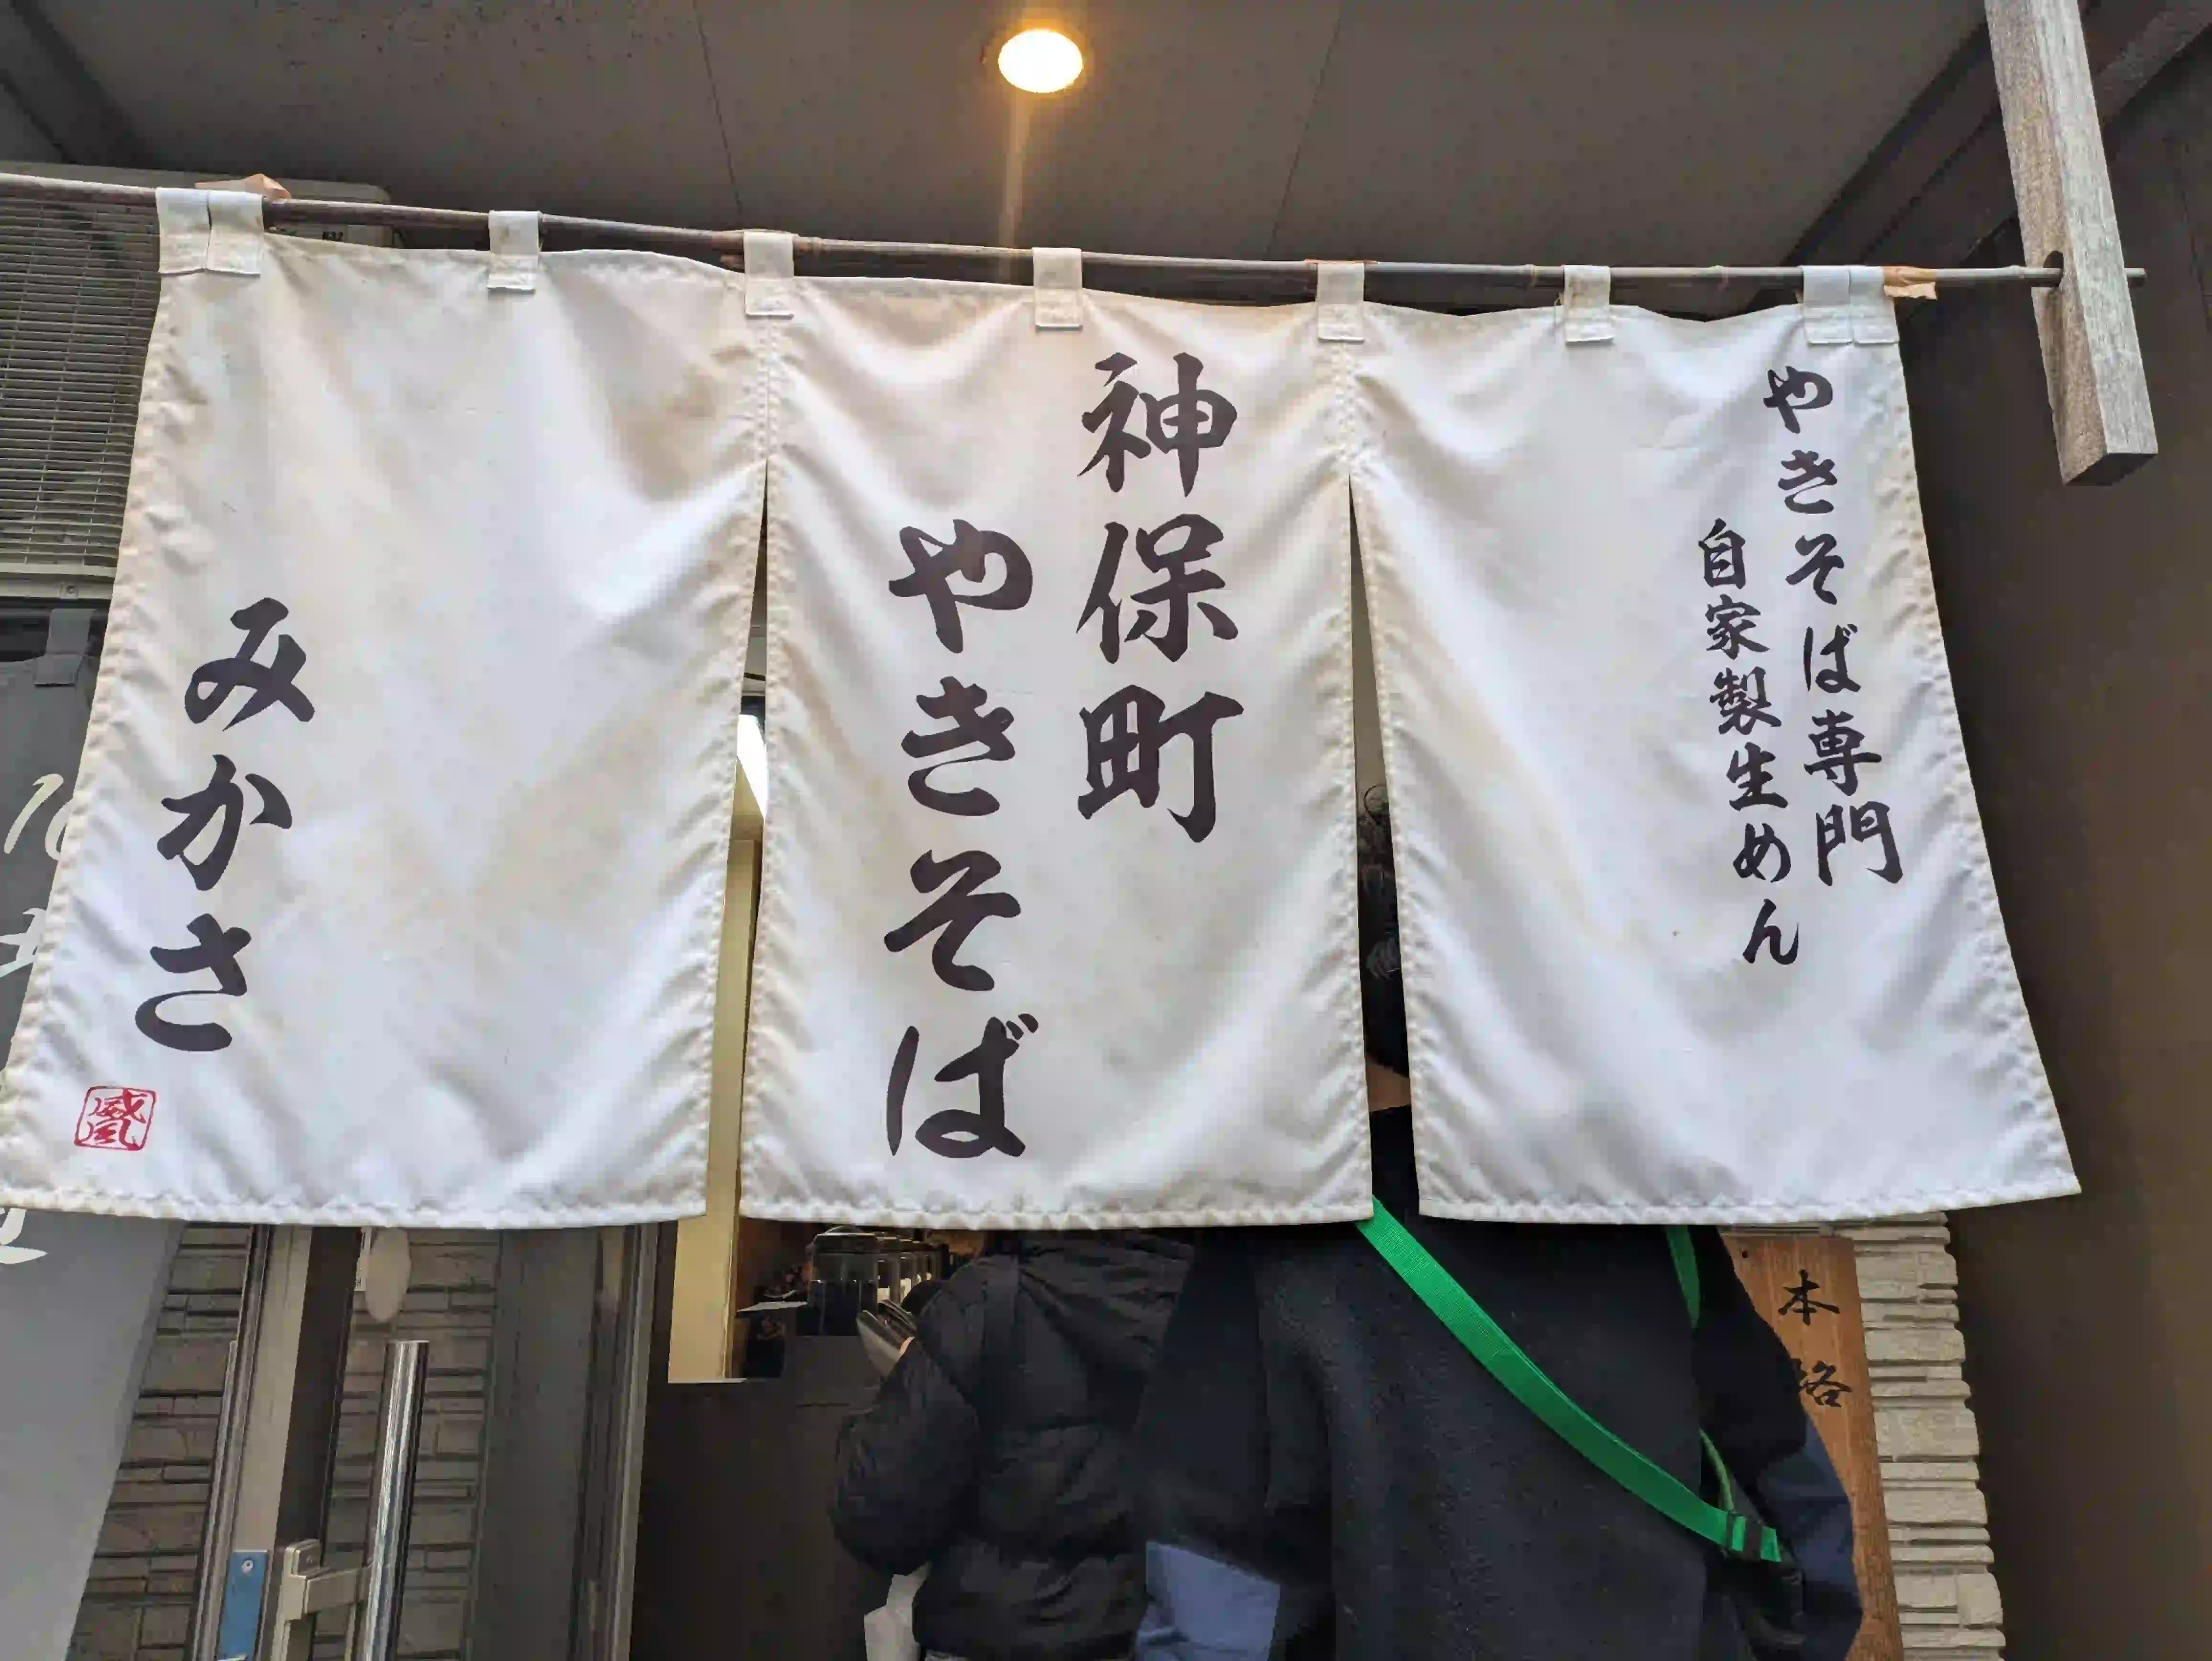 やきそば専門
自家製生めん
神保町
やきそば
みかさ
本
格